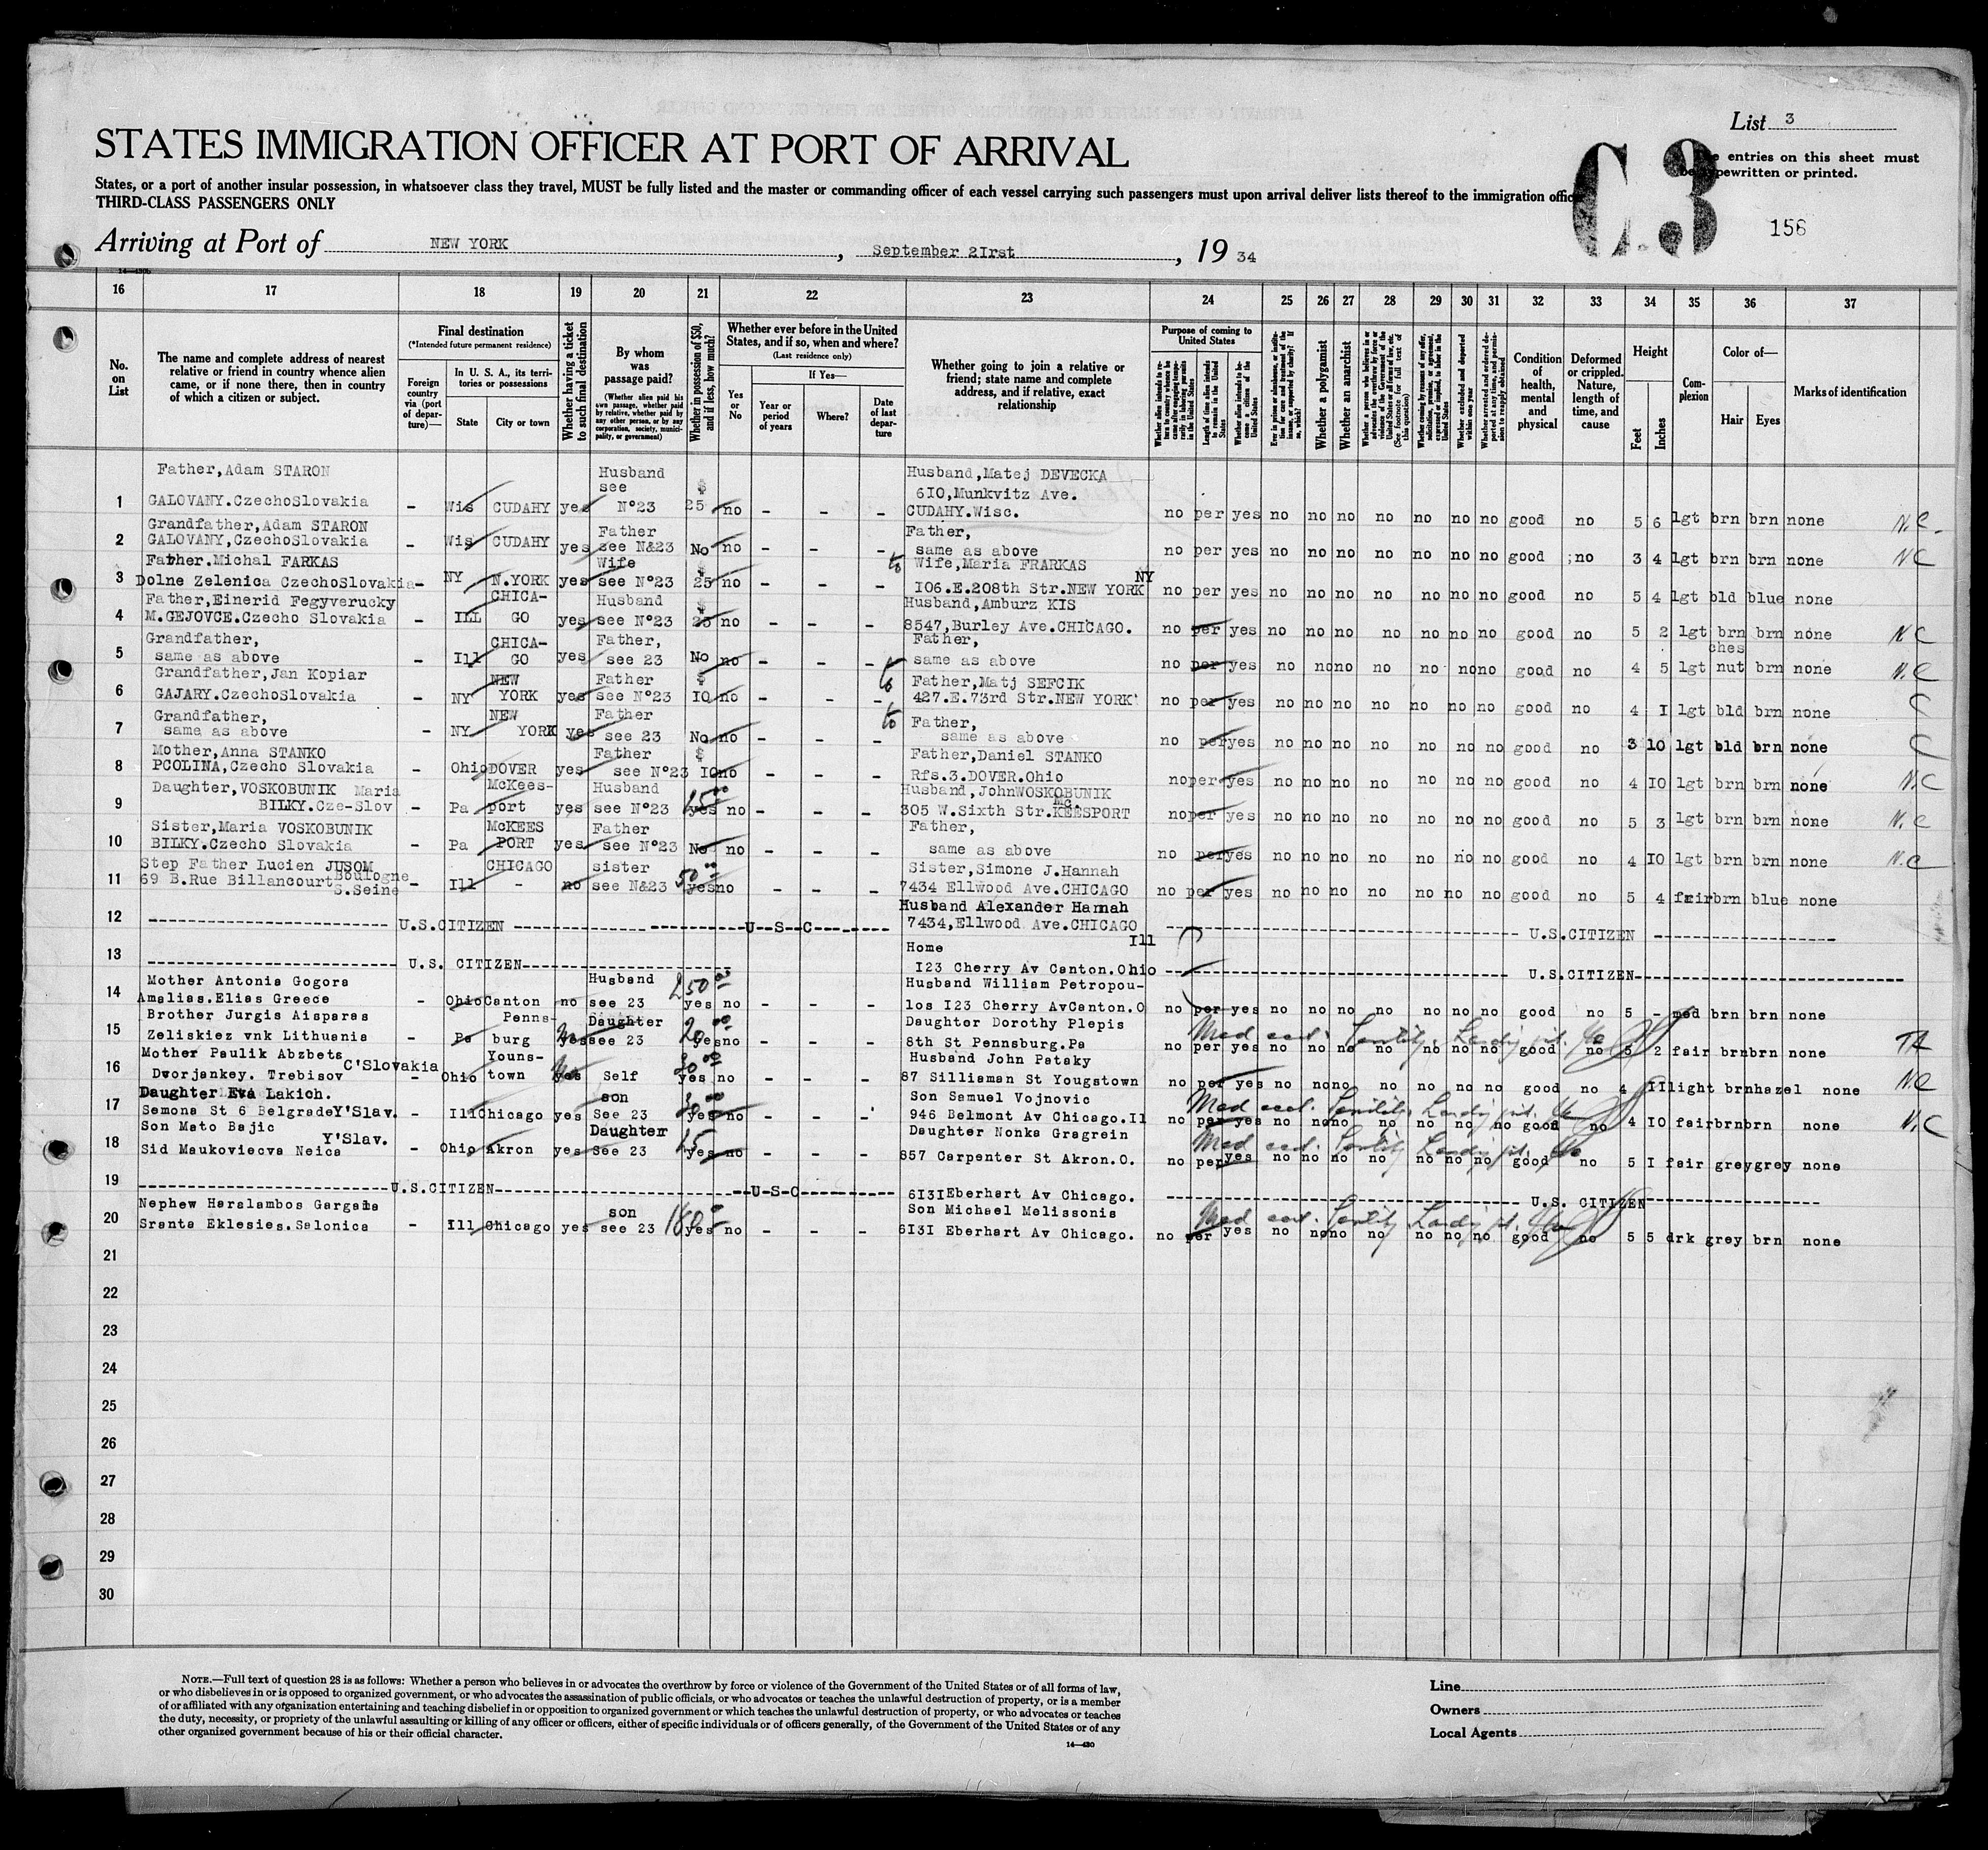 List 3
STATES IMMIGRATION OFFICER AT PORT OF ARRIVAL
C.3
The entries on this sheet must
be typewritten or printed.
States, or a port of another insular possession, in whatsoever class they travel, MUST be fully listed and the master or commanding officer of each vessel carrying such passengers must upon arrival deliver lists thereof to the immigration offic
THIRD-CLASS PASSENGERS ONLY
156
Arriving at Port of NEW YORK , September 2Irst , 19 34
14—430b
16 17 18 19 20 21 22 23 24 25 26 27 28 29 30 31 32 33 34 35 36 37
No. on List
The name and complete address of nearest relative or friend in country whence alien came, or if none there, then in country of which a citizen or subject.
Final destination
(*Intended future permanent residence)
Foreign country via (port of depar-ture)—
In U. S. A., its terri-tories or possessions
State
City or town
Whether having a ticket to such final destination
By whom was passage paid?
(Whether alien paid his own passage, whether paid by relative, whether paid by any other person, or by any corporation, society, munici-pality, or government)
Whether in possession of $50, and if less, how much?
Whether ever before in the United States, and if so, when and where?
(Last residence only)
Yes or No
If Yes—
Year or period of years
Where?
Date of last depar-ture
Whether going to join a relative or friend; state name and complete address, and if relative, exact relationship
Purpose of coming to United States
Length of time alien intends to remain in the United States
Whether alien intends to be-come a citizen of the United States
Whether a polygamist
Whether an anarchist
Condition of health, mental and physical
Deformed or crippled. Nature, length of time, and cause
Height
Feet
Inches
Com-plexion
Color of—
Hair
Eyes
Marks of identification
Father,Adam STARON Husband Husband,Matej DEVECKA
see $ 6IO,Munkvitz Ave.
1 GALOVANY.CzechoSlovakia - Wis CUDAHY yes N°23 25 no - - - CUDAHY.Wisc. no per yes no no no no no no no good no 5 6 lgt brn brn none N.C.
Grandfather,Adam STARON Father Father,
2 GALOVANY,CzechoSlovakia - Wis CUDAHY yes see N&23 No no - - - same as above no per yes no no no no no no no good no 3 4 lgt brn brn none NC
Father.Michal FARKAS Wife $ to Wife,Maria FRARKAS
3 Dolne Zelenica CzechoSlovakia - NY N.YORK yes see N°23 25 no - - - IO6.E.208th Str.NEW YORK NY no per yes no no no no no no no good no 5 4 lgt bld blue none
Father,Einerid Fegyverucky CHICA- Husband $ Husband, Amburz KIS
4 M.GEJOVCE.Czecho Slovakia - ILL GO yes see N°23 25 no - - - 8547,Burley Ave.CHICAGO. no per yes no no no no no no no good no 5 2 lgt brn brn none N C
Grandfather, CHICA- Father, Father, ches
5 same as above - Ill GO yes see 23 No no - - - same as above no per yes no no no no no no no good no 4 5 lgt nut brn none N.C
Grandfather,Jan Kopiar NEW Father $ to Father,Matj SEFCIK
6 GAJARY.CzechoSlovakia - NY YORK yes see N°23 IO no - - - 427.E.73rd Str.NEW YORK no per yes no no no no no no no good no 4 I lgt bld brn none C
Grandfather, NEW Father to Father,
7 same as above - NY YORK yes see 23 No no - - - same as above no per yes no no no no no no no good no 3 10 lgt bld brn none C
Mother,Anna STANKO Father $ Father,Daniel STANKO
8 PCOLINA,Czecho Slovakia - Ohio DOVER yes see N°23 IO no - - - Rfs.3.DOVER.Ohio no per yes no no no no no no no good no 4 IO lgt brn brn none N.C
Daughter,VOSKOBUNIK Maria McKees- Husband Husband,JohnWOSKOBUNIK
9 BILKY.Cze-Slov - Pa port yes see N°23 yes no - - - 305 W.Sixth Str.Mc.KEESPORT no per yes no no no no no no no good no 5 3 lgt brn brn none N.C
Sister,Maria VOSKOBUNIK McKEES Father Father,
10 BILKY.Czecho Slovakia - Pa PORT yes see N°23 No no - - - same as above no per yes no no no no no no no good no 4 IO lgt brn brn none N.C
Step Father Lucien JUSOM CHICAGO sister 50 Sister,Simone J.Hannah
11 69 B.Rue Billancourt Boulogne S.Seine - Ill - no see N&23 yes no - - - 7434 Ellwood Ave.CHICAGO no per yes no no no no no no no good no 5 4 fair brn blue none
Husband Alexander Hannah
12 U.S.CITIZEN U--S--C 7434,Ellwood Ave.CHICAGO U.S.CITIZEN
Home Ill
13 U.S. CITIZEN I23 Cherry Av Canton.Ohio U.S.CITIZEN
Mother Antonia Gogora Husband 250 Husband William Petropou-
14 Amalias.Elias Greece - Ohio Canton no see 23 yes no - - - los I23 Cherry AvCanton.O no per yes no no no no no no no good no 5 - med brn brn none
Brother Jurgis Aisparas Penns- Daughter 20 Daughter Dorothy Plepis Med cert. Senility.
15 Zeliskiez vnk Lithuania - Pa burg yes see 23 yes no - - - 8th St Pennsburg.Pa no per yes no no no no no no no good no 5 2 fair brn brn none
Mother Paulik Abzbets Youns- 30 Husband John Petsky
16 Dworjankey. Trebisov C'Slovakia - Ohio town yes Self yes no - - - 87 Silliaman St Yougstown no per yes no no no no no no no good no 4 II light brn hazel none NC
Daughter Eva Lakich. son 30 Son Samuel Vojnovic Med cert. Senility.
17 Semona St 6 Belgrade Y'Slav. - Ill Chicago yes See 23 yes no - - - 946 Belmont Av Chicago.Il no per yes no no no no no no no good no 4 IO fair brn brn none N.C
Son Mato Bajic Daughter 15 Daughter Nonka Gragrein Med cert. Senility
18 Sid Maukoviecva Neica Y'Slav. - Ohio Akron yes See 23 yes no - - - 857 Carpenter St Akron.O. no per yes no no no no no no no good no 5 I fair grey grey none
19 U.S.CITIZEN U-S-C 6I3IEberhart Av Chicago. U.S. CITIZEN
Nephew Haralambos Gargala son Son Michael Melissonis Med cert. Senility
20 Sranta Eklesies.Salonica - Ill Chicago yes see 23 yes no - - - 6I3I Eberhart Av Chicago. no per yes no no no no no no no good no 5 5 drk grey brn none
21
22
23
24
25
26
27
28
29
30
NOTE.—Full text of question 28 is as follows: Whether a person who believes in or advocates the overthrow by force or violence of the Government of the United States or of all forms of law,
or who disbelieves in or is opposed to organized government, or who advocates the assassination of public officials, or who advocates or teaches the unlawful destruction of property, or is a member
of or affiliated with any organization entertaining and teaching disbelief in or opposition to organized government or which teaches the unlawful destruction of property, or who advocates or teaches
the duty, necessity, or propriety of the unlawful assaulting or killing of any officer or officers, either of specific individuals or of officers generally, of the Government of the United States or of any
other organized government because of his or their official character.
14—430
Line
Owners
Local Agents